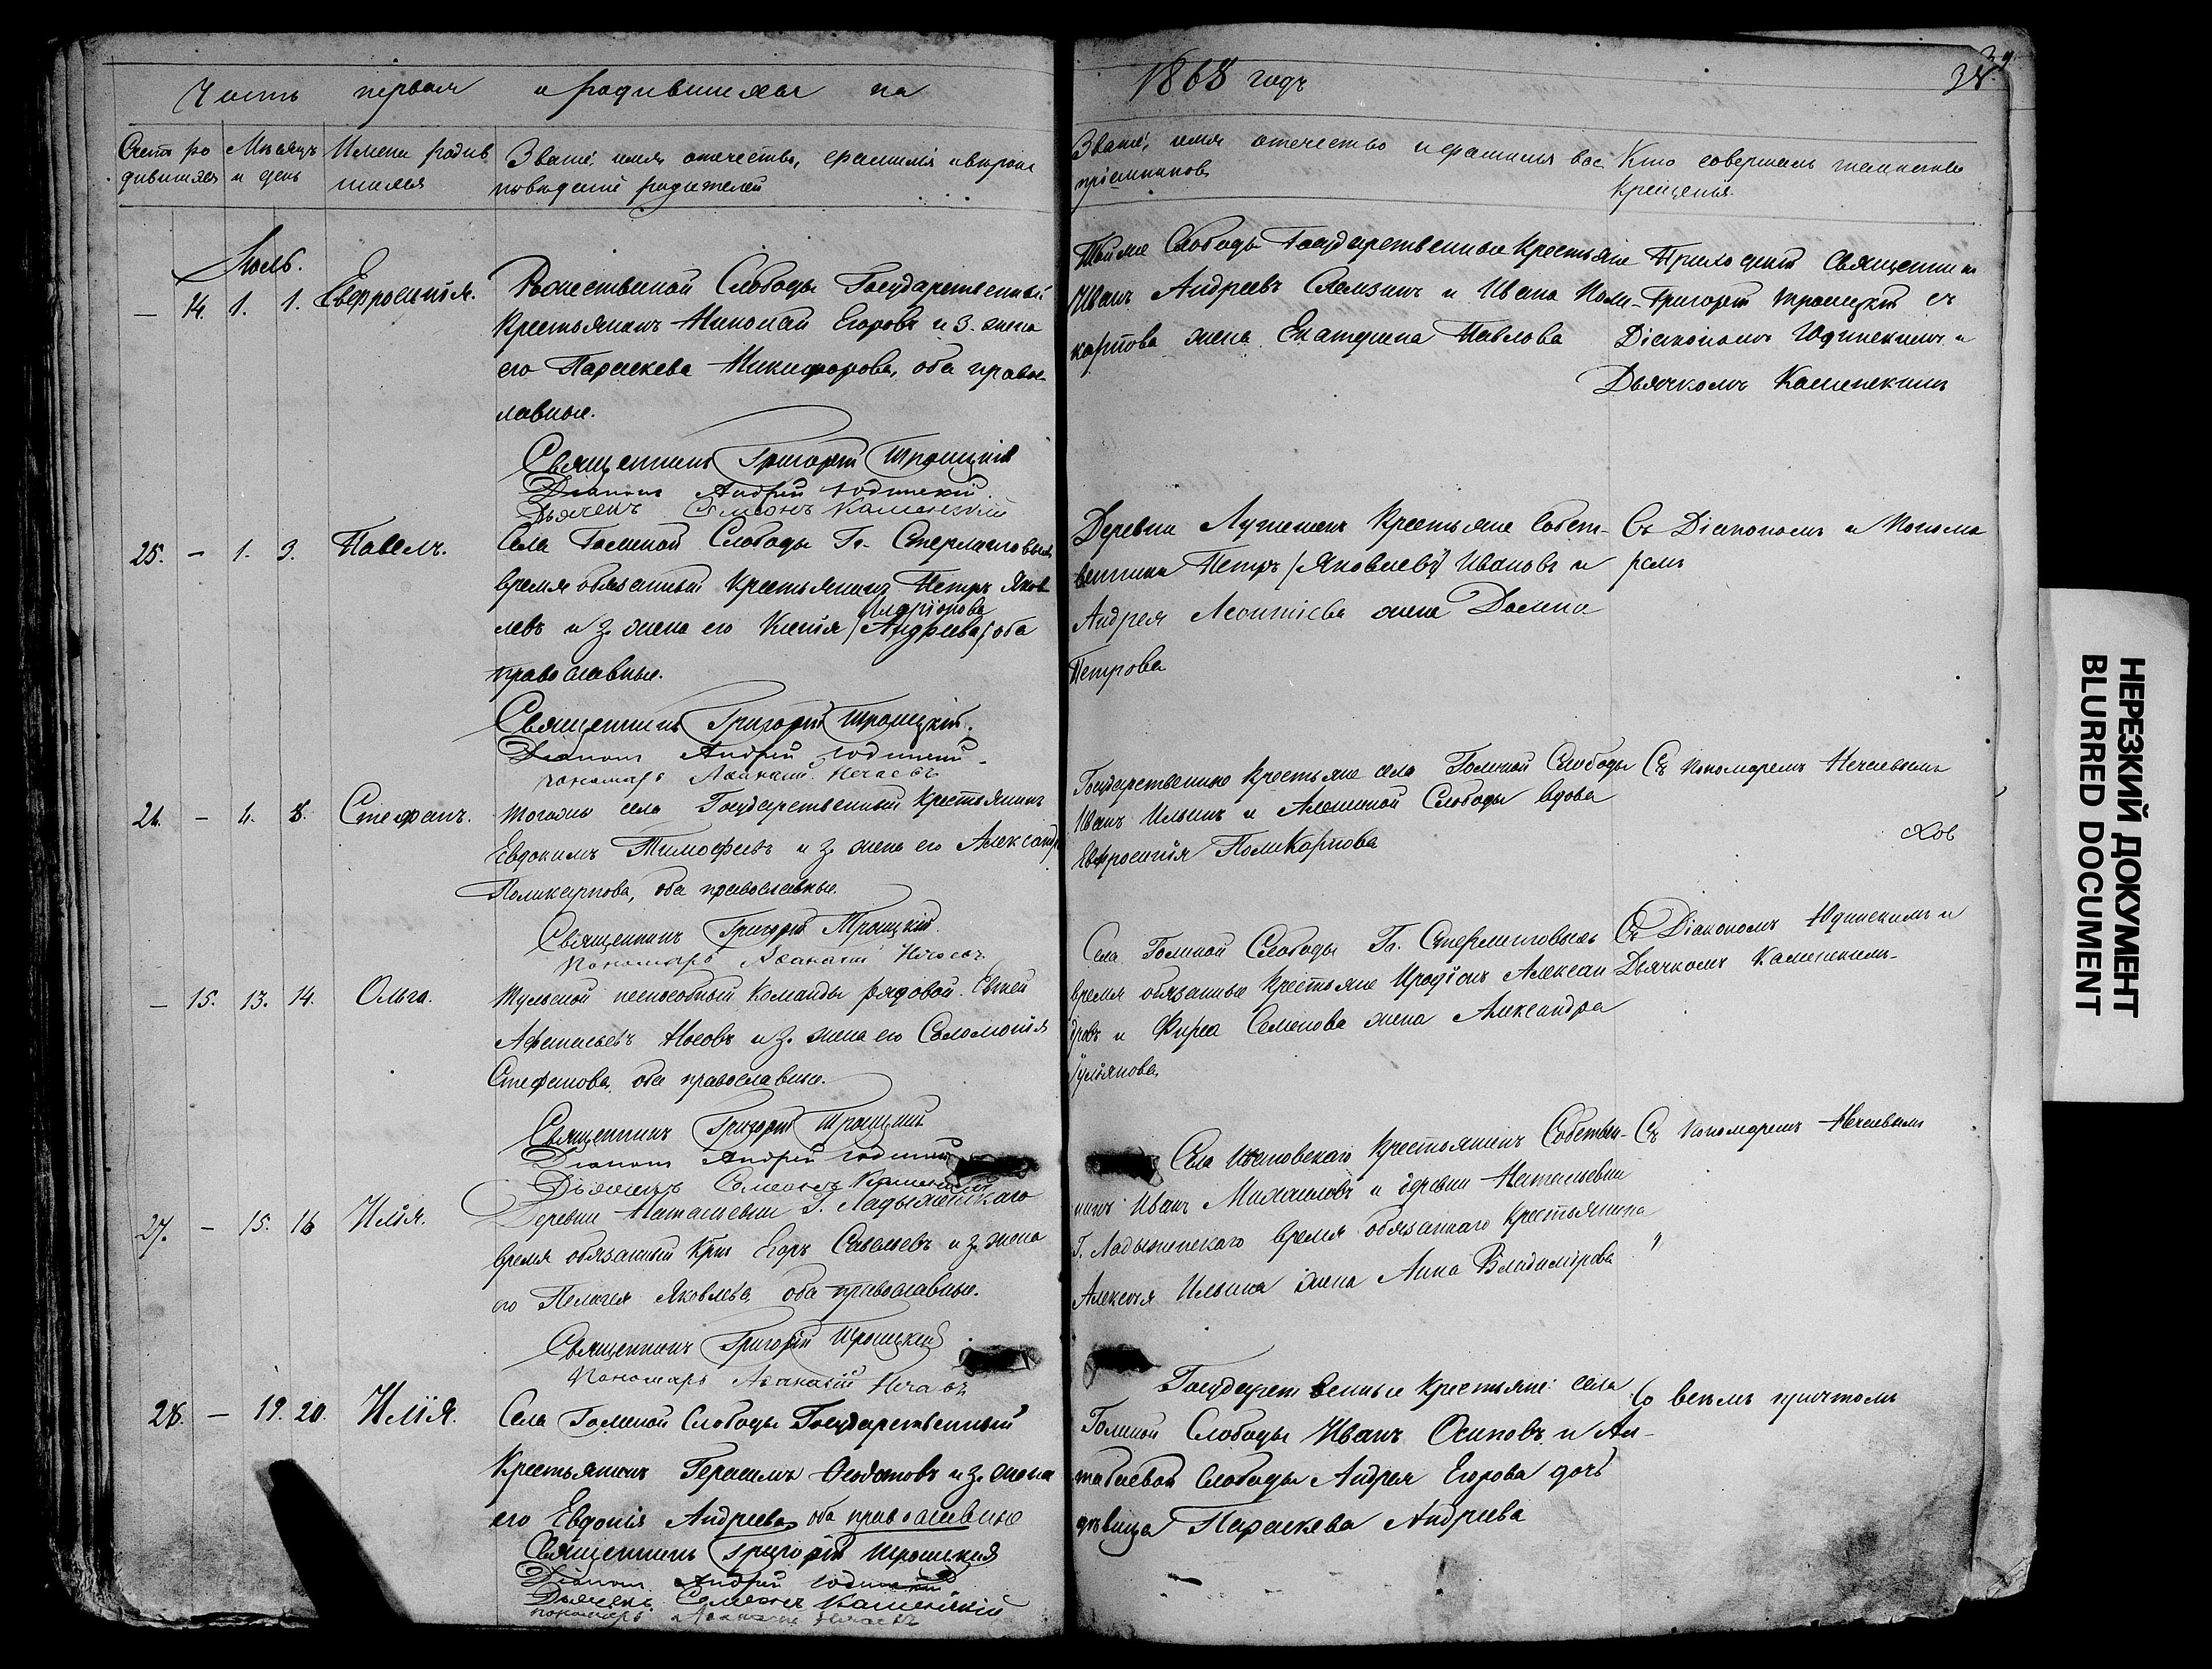 Часть первая о родившихся на
Счетъ ро Мѣсяцъ Имена родив Званіе, имя отчество, и какого вѣроис
дившихся и день шихся повѣданія родители
Іюль.
— 14. 1. 1. Евфросинія. Рождественой Слободы Государственный
Крестьянинъ Николай Егоровъ и з. жена
его Параскева Никифорова, оба правос
лавные.
Священникъ Григорій Троицкій
Діаконъ Андрей Юдинскій.
Дьячекъ Симеонъ Каменскій
25. — 1. 3. Павелъ. Села Голиной Слободы Гг.
время обязанный Крестьянинъ Петръ Яков
Андріонова
левъ и з. жена его Ксенія (Андреева) оба
православные.
Священникъ Григорій Троицкій.
Діаконъ Андрей Юдинскій
пономарь Афанасій Нечаевъ
26. — 4. 8. Стефанъ. Тогоже села Государственный Крестьянинъ
Евдокимъ Тимофеевъ и з. жена его Александра
Поликарпова, оба православные.
Священникъ Григорій Троицкій.
Пономарь Афанасій Нечаевъ
— 15. 13. 14. Ольга. Тульской неспособной Команды рядовой
Афанасьевъ Носовъ и з. жена его Соломонія
Стефанова, оба православные.
Священникъ Григорій Троицкій
Діаконъ Андрей Юдинскій
Дьячекъ Симеонъ Каменскій
27. — 15. 16 Илія. Деревни Натальевки Г. Ладыженскаго
время обязанный Кресть Егоръ Савельевъ и з. жена
его Пелагея Яковлева, оба православные.
Священникъ Григорій Троицкій
Пономарь Афанасій Нечаевъ
28. — 19. 20. Илія. Села Голиной Слободы Государственный
Крестьянинъ Герасимъ Федотовъ и з. жена
его Евдокія Андреева, оба православные
Священникъ Григорій Троицкій
Діаконъ Андрей Юдинскій
Дьячекъ Симеонъ Каменскій
пономарь Афанасій Нечаевъ
1868 годъ
38.
Званіе, имя отчество и фамилія вос Кто совершалъ таинство
пріемниковъ Крещенія.
Тойже Слободы Государственные Крестьяне Приходскій Священникъ
Иванъ Андреевъ и Ивана Поли- Григорій Троицкій съ
карпова жена Екатерина Павлова Діакономъ Юдинскимъ и
Дьячкомъ Каменскимъ
Деревни Крестьяне Собст- Съ Діакономъ и Понома
венники Петръ (Яковлевъ) Ивановъ и ремъ
Андрея Леонтіева жена Домна
Петрова
Государственные крестьяне села Голиной Слободы Съ Пономаремъ Нечаевымъ
Иванъ Ильинъ и Слободы вдова
Евфросинія Поликарпова
Села Голиной Слободы Гг. Съ Діакономъ Юдинскимъ и
время обязанные Крестьяне Иродіонъ Алексан Дьячкомъ Каменскимъ
дровъ и Фирса Семенова жена Александра
Села Ивановскаго Крестьянинъ Собствен- Съ Пономаремъ Нечаевымъ
никъ Иванъ Михаиловъ и деревни Натальевки
Г. Ладыженскаго время обязаннаго Крестьянина
Алексѣя Ильина жена Анна Владимірова
Государственные крестьяне села Со всѣмъ причтомъ
Голиной Слободы Иванъ Осиповъ и
Слободы Андрея Егорова дочь
дѣвица Параскева Андреева
НЕРЕЗКИЙ ДОКУМЕНТ
BLURRED DOCUMENT